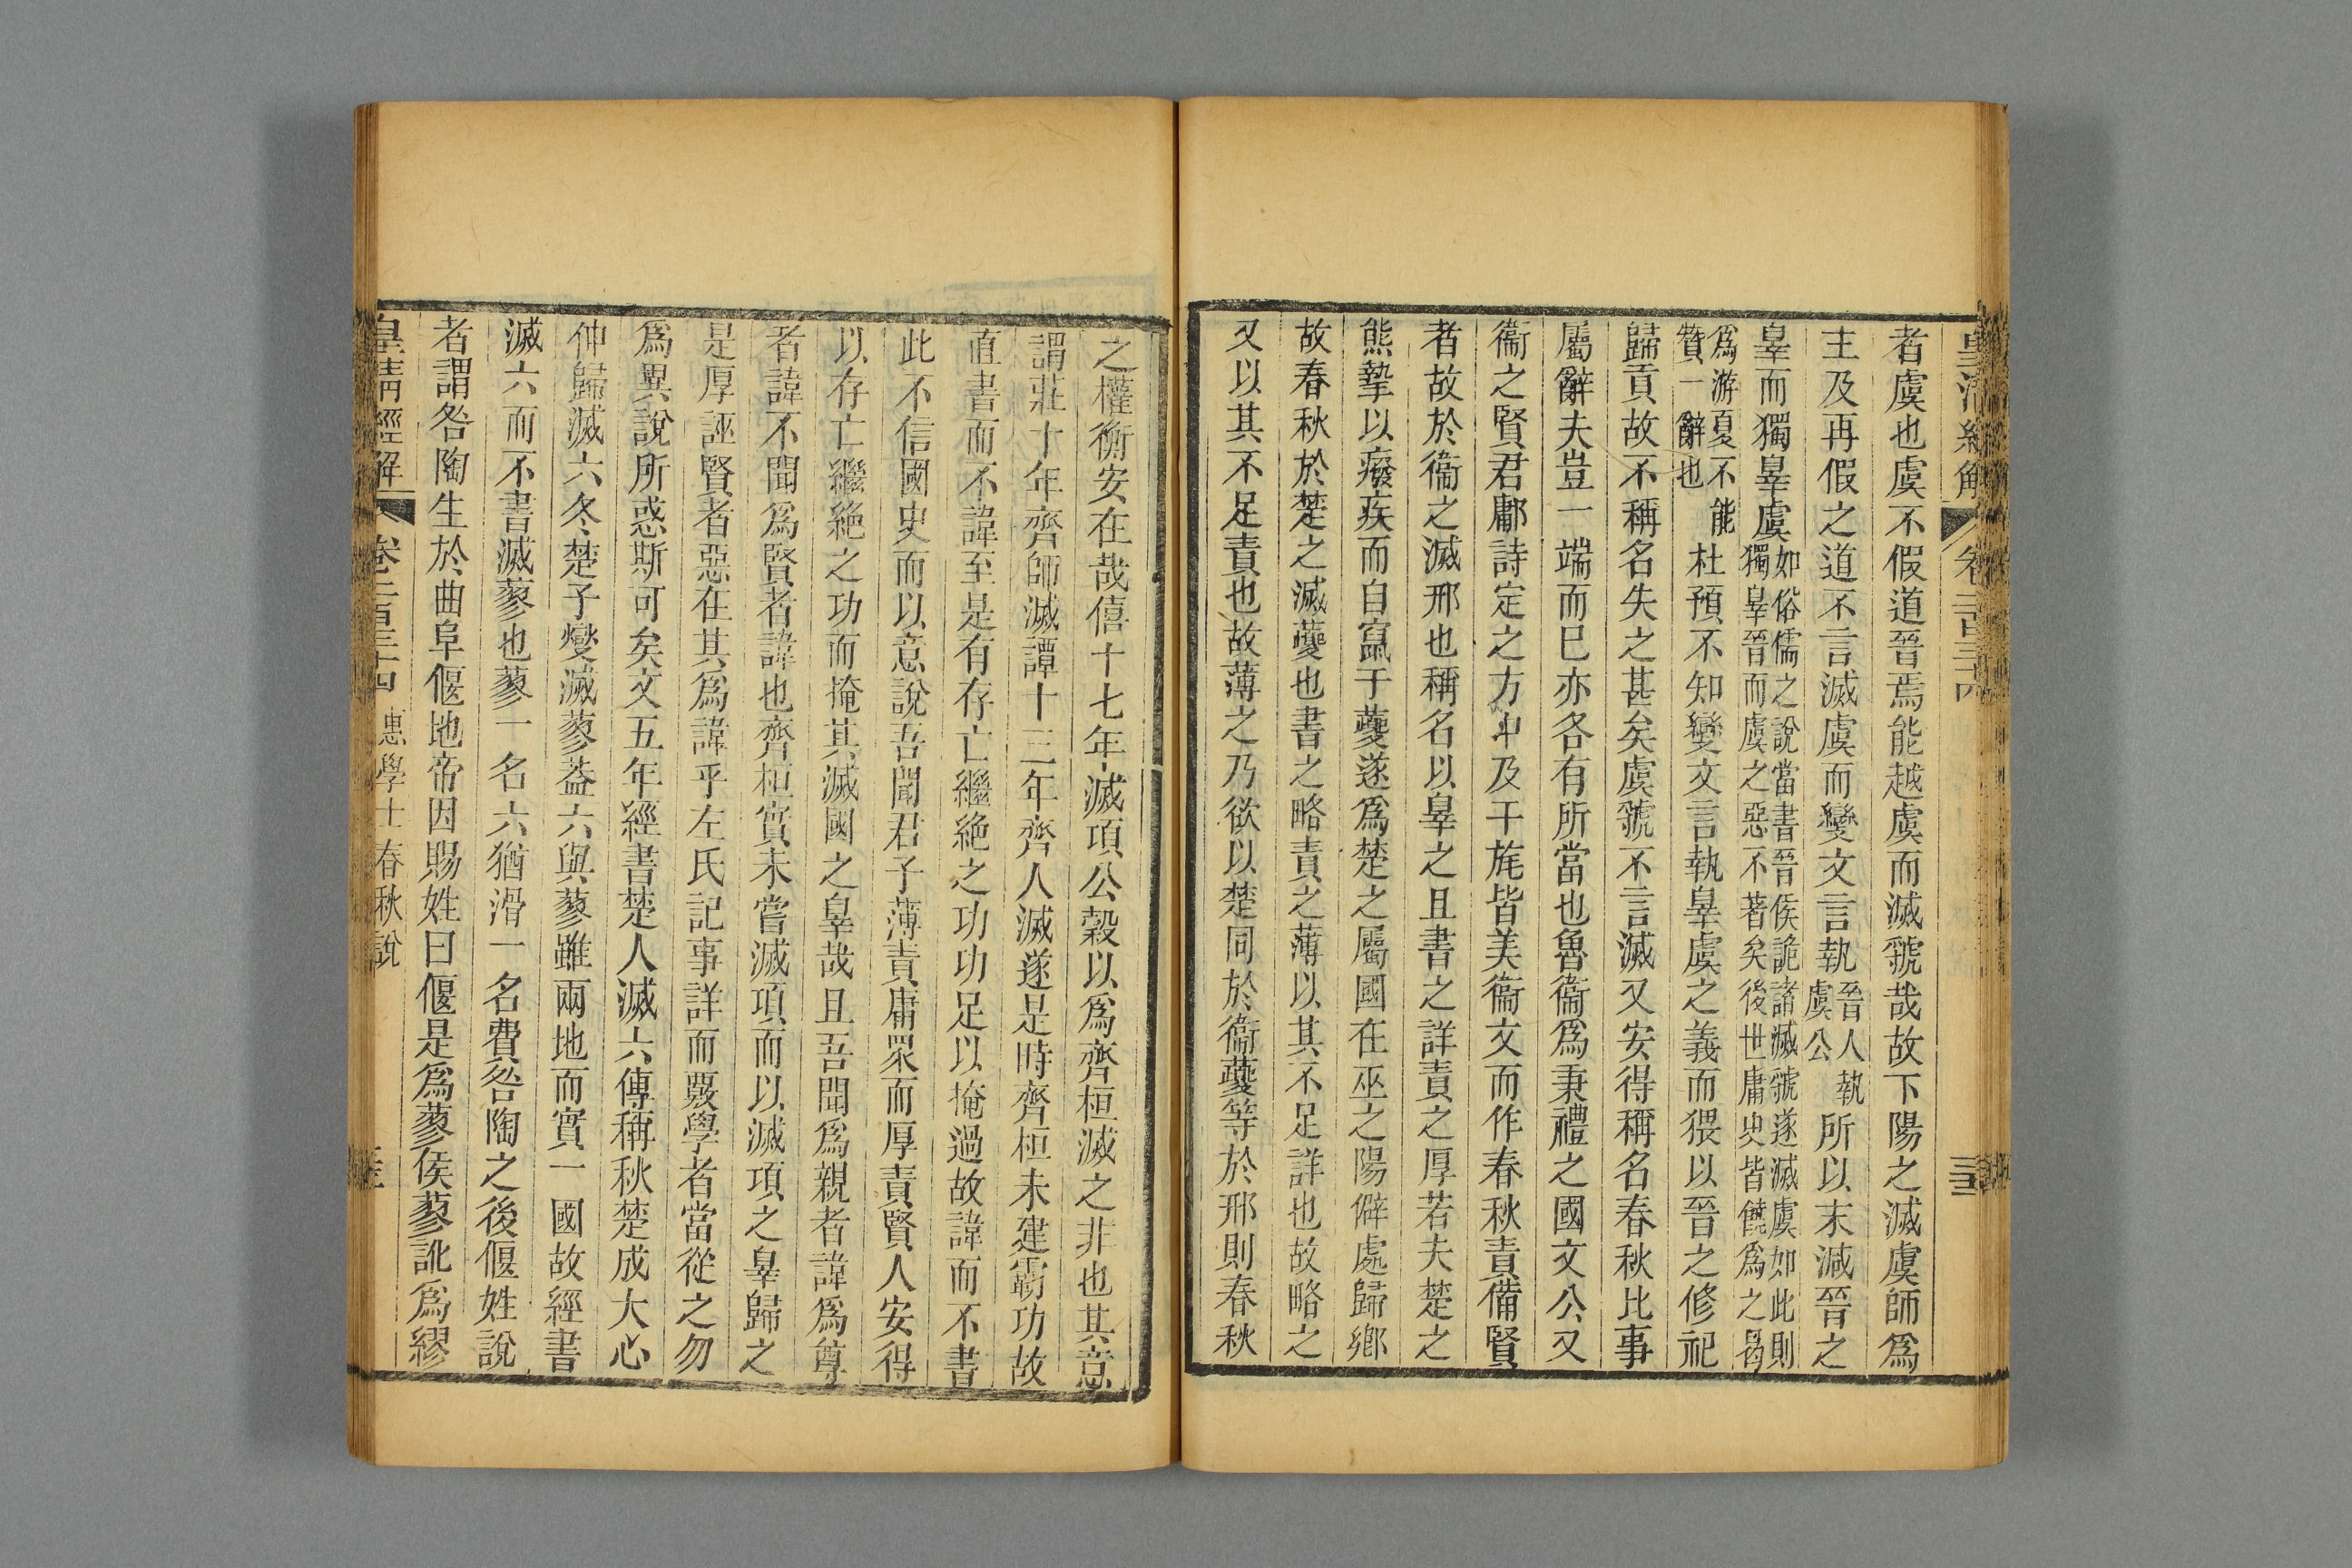 皇清經解 卷二百三十四
者虞也虞不假道晉焉能越虞而滅虢哉故下陽之滅虞師爲
主及再假之道不言滅虞而變文言執晉人執虞公所以末減晉之
辠而獨辠虞如俗儒之說當書晉侯詭諸滅虢遂滅虞如此則獨辠晉而虞之惡不著矣後世庸史皆能爲之曷
爲游夏不能贊一辭也杜預不知變文言執辠虞之義而猥以晉之修祀
歸貢故不稱名失之甚矣虞虢不言滅又安得稱名春秋比事
屬辭夫豈一端而已亦各有所當也魯衞爲秉禮之國文公又
衞之賢君鄘詩定之方中及干旄皆美衞文而作春秋責備賢
者故於衞之滅邢也稱名以辠之且書之詳責之厚若夫楚之
熊摯以癈疾而自竄于夔遂爲楚之屬國在巫之陽僻處歸鄉
故春秋於楚之滅夔也書之略責之薄以其不足詳也故略之
又以其不足責也故薄之乃欲以楚同於衞夔等於邢則春秋
之權衡安在哉僖十七年滅項公穀以爲齊桓滅之非也其意
謂莊十年齊師滅譚十三年齊人滅遂是時齊桓未建霸功故
直書而不諱至是有存亡繼絶之功功足以掩過故諱而不書
此不信國史而以意說吾聞君子薄責庸眾而厚責賢人安得
以存亡繼絶之功而掩其滅國之辠哉且吾聞爲親者諱爲尊
者諱不聞爲賢者諱也齊桓實未嘗滅項而以滅項之辠歸之
是厚誣賢者惡在其爲諱乎左氏記事詳而覈學者當從之勿
爲異說所惑斯可矣文五年經書楚人滅六傳稱秋楚成大心
仲歸滅六冬楚子燮滅蓼葢六與蓼雖兩地而實一國故經書
滅六而不書滅蓼也蓼一名六猶滑一名費咎陶之後偃姓說
者謂咎陶生於曲阜偃地帝因賜姓曰偃是爲蓼侯蓼訛爲繆
皇清經解 卷二百三十四 惠學士春秋說